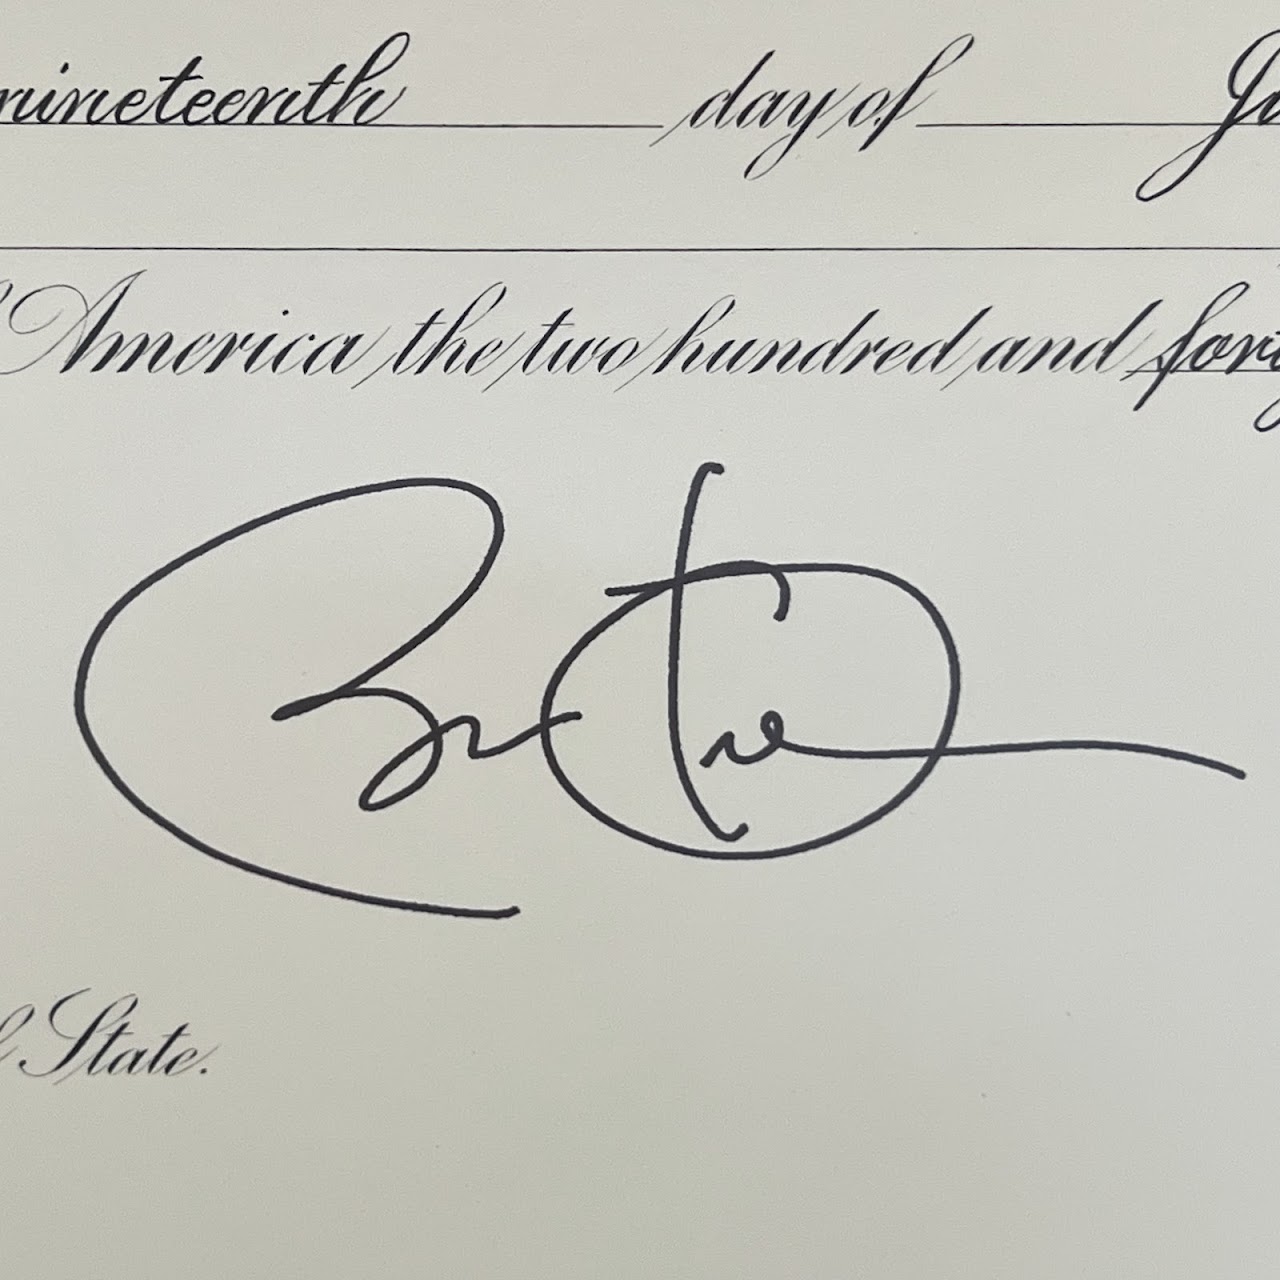 nineteenth day of
America the two hundred and
State.